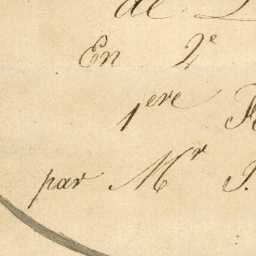 de
En 2e
1ere
par Mr J.